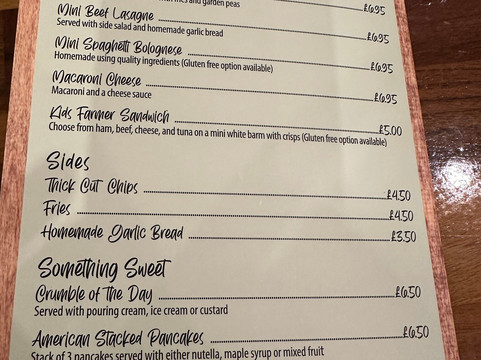 and garden peas £6.95
Mini Beef Lasagne £6.95
Served with side salad and homemade garlic bread
Mini Spaghetti Bolognese £6.95
Homemade using quality ingredients (Gluten free option available)
Macaroni Cheese £6.95
Macaroni and a cheese sauce
Kids Farmer Sandwich £5.00
Choose from ham, beef, cheese, and tuna on a mini white barm with crisps (Gluten free option available)
Sides
Thick Cut Chips £4.50
Fries £4.50
Homemade Garlic Bread £3.50
Something Sweet
Crumble of The Day £6.50
Served with pouring cream, ice cream or custard
American Stacked Pancakes £6.50
Stack of 3 pancakes served with either nutella, maple syrup or mixed fruit